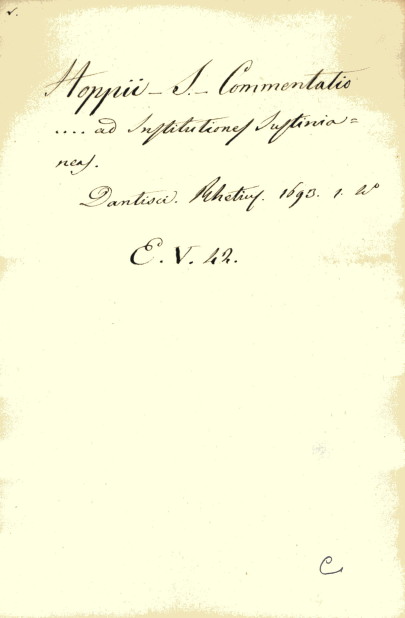 Hoppii – S. – Commentatio
.... ad Institutiones Justinia=
neas.
Dantisci. Rhetius. 1693. 1. w°
E. V. 42.
C